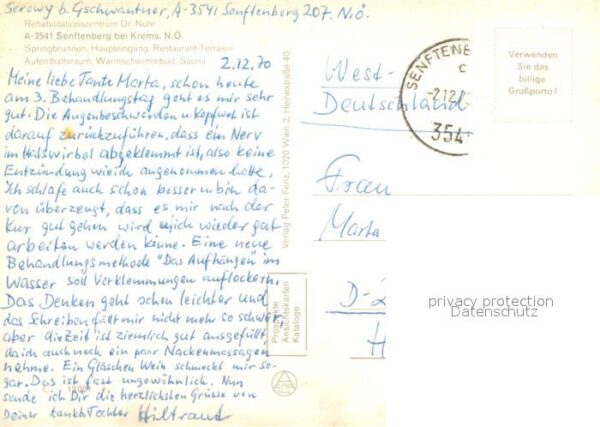 Serowy b. Gschwantner, A-3541 Senftenberg 207. N.Ö.
Rehabilitationszentrum Dr. Nuhr
A-3541 Senftenberg bei Krems, N.Ö.
Springbrunnen, Haupteingang, Restaurant-Terrasse
Aufenthaltsraum, Warmschwimmbad, Sauna
2.12.70
Meine liebe Tante Marta, schon heute
am 3. Behandlungstag geht es mir sehr
gut. Die Augenbeschwerden u. Kopfweh ist
darauf zurückzuführen, dass ein Nerv
im Halswirbel abgeklemmt ist, also keine
Entzündung wie ich angenommen hatte.
Ich schlafe auch schon besser u. bin da-
von überzeugt, dass es mir nach der
Kur gut gehen wird u. ich wieder gut
arbeiten werden könne. Eine neue
Behandlungsmethode "Das Aufhängen" im
Wasser soll Verklemmungen auflockern.
Das Denken geht schon leichter und
das Schreiben fällt mir nicht mehr so schwer,
aber die Zeit ist ziemlich gut ausgefüllt,
da ich auch noch ein paar Nackenmassagen
nehme. Ein Gläschen Wein schmeckt mir so-
gar. Das ist fast ungewöhnlich. Nun
sende ich Dir die herzlichsten Grüsse von
Deiner dankb. Tochter Hiltraud
Verlag Peter Fenz, 1020 Wien 2, Heinestraße 40
Prospekte
Ansichtskarten
Kataloge
SENFTENE
-2.12.
354
Verwenden
Sie das
billige
Grußporto!
West-
Deutschland
Frau
Marta
D-2
H
privacy protection
Datenschutz